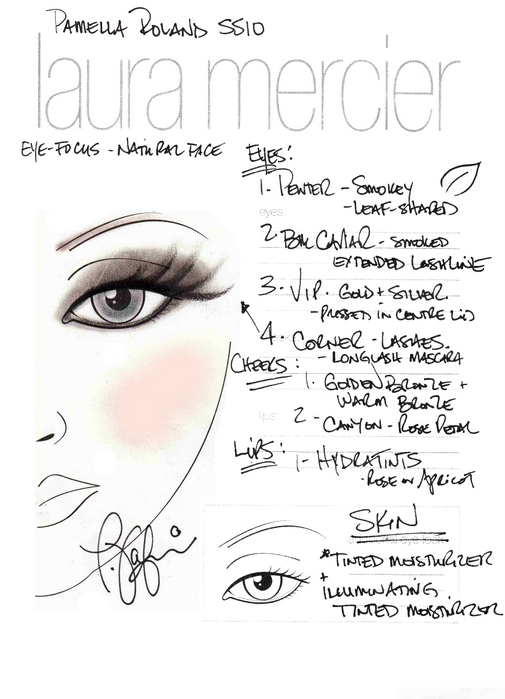 PAMELLA ROLAND SS10
laura mercier
EYE-FOCUS - NATURAL FACE
EYES:
1. PEWTER - SMOKEY
- LEAF-SHARED
eyes
2. BLK CAVIAR - SMOKED
EXTENDED LASHLINE
3. V.I.P. GOLD + SILVER
- PRESSED IN CENTRE LID
4. CORNER - LASHES.
- LONGLASH MASCARA
CHEEKS:
1. GOLDEN BRONZE +
WARM BRONZE
lips
2 - CANYON - ROSE PETAL
LIPS:
1 - HYDRATINTS
- ROSE or APRICOT
SKIN
* TINTED MOISTURIZER
+
ILLUMINATING.
TINTED MOISTURIZER